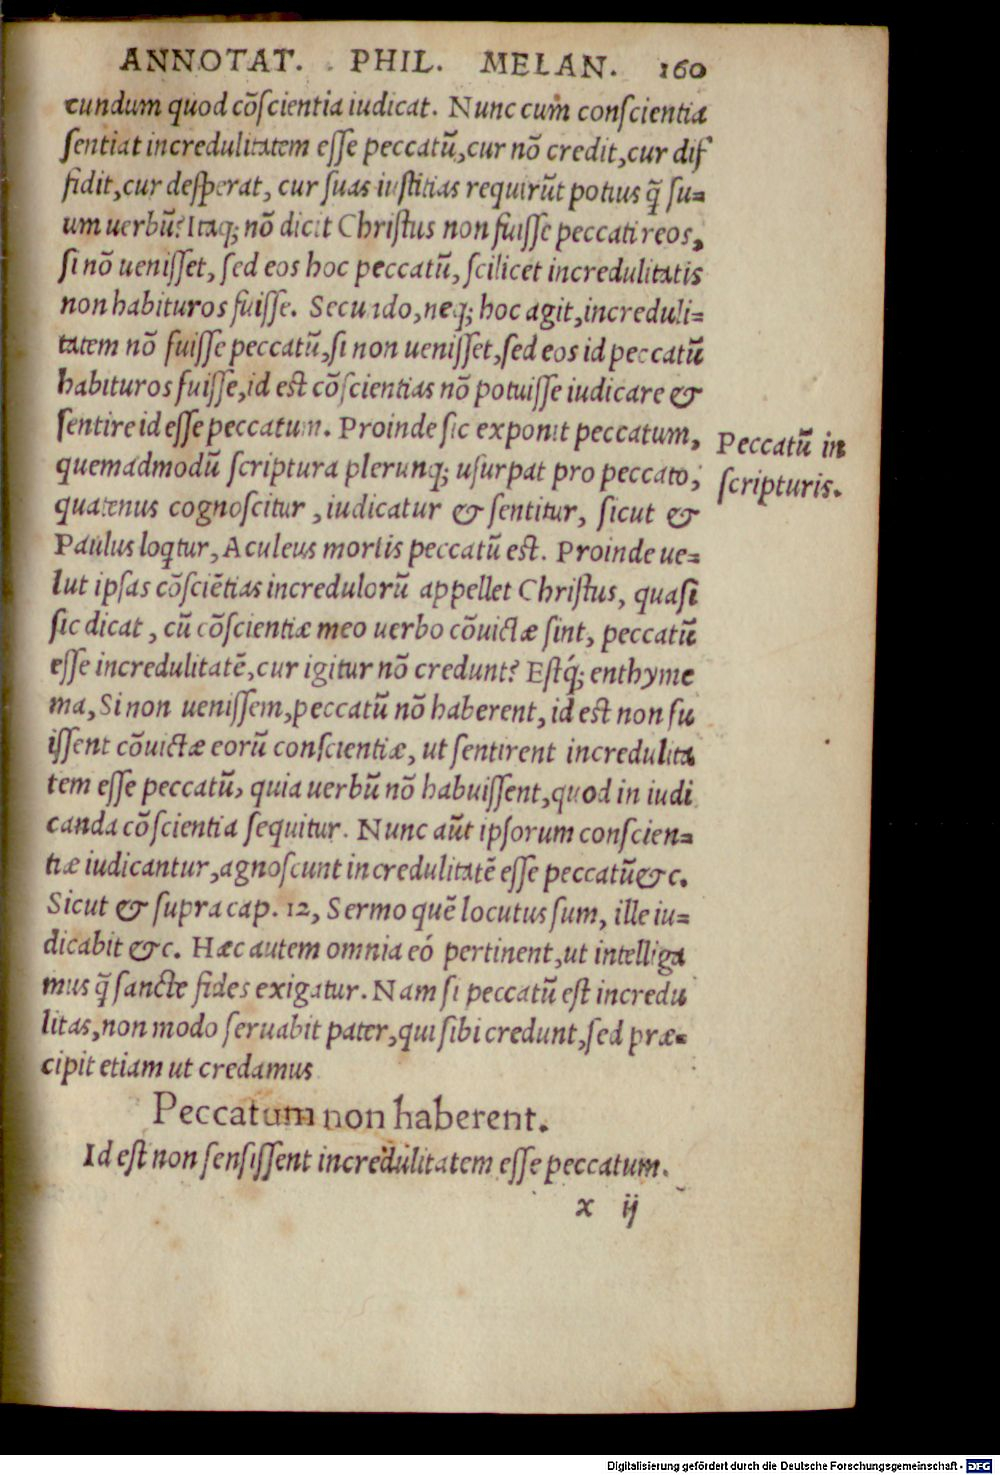 ANNOTAT. PHIL. MELAN. 160
cundum quod cõſcientia iudicat. Nunc cum conſcientia
ſentiat incredulitatem eſſe peccatũ, cur nõ credit, cur dif
fidit, cur deſperat, cur ſuas iuſtitias requirũt potius q̃ ſu-
um uerbũ? Itaq; nõ dicit Chriſtus non fuiſſe peccati reos,
ſi nõ ueniſſet, ſed eos hoc peccatũ, ſcilicet incredulitatis
non habituros fuiſſe. Secundo, neq; hoc agit, increduli-
tatem nõ fuiſſe peccatũ, ſi non ueniſſet, ſed eos id peccatũ
habituros fuiſſe, id eſt cõſcientias nõ potuiſſe iudicare &
ſentire id eſſe peccatum. Proinde ſic exponit peccatum,
quemadmodũ ſcriptura plerunq; uſurpat pro peccato,
quatenus cognoſcitur, iudicatur & ſentitur, ſicut &
Paulus loqtur, Aculeus mortis peccatũ eſt. Proinde ue-
lut ipſas cõſciẽtias incredulorũ appellet Chriſtus, quaſi
ſic dicat, cũ cõſcientiæ meo uerbo cõuictæ ſint, peccatũ
eſſe incredulitatẽ, cur igitur nõ credunt? Eſtq́; enthyme
ma, Si non ueniſſem, peccatũ nõ haberent, id eſt non fu
iſſent cõuictæ eorũ conſcientiæ, ut ſentirent incredulita
tem eſſe peccatũ, quia uerbũ nõ habuiſſent, quod in iudi
canda cõſcientia ſequitur. Nunc aũt ipſorum conſcien-
tiæ iudicantur, agnoſcunt incredulitatẽ eſſe peccatũ &c.
Sicut & ſupra cap. 12, Sermo quẽ locutus ſum, ille iu-
dicabit &c. Hæc autem omnia eó pertinent, ut intelliga
mus q̃ ſancte fides exigatur. Nam ſi peccatũ eſt incredu
litas, non modo ſeruabit pater, qui ſibi credunt, ſed præ-
cipit etiam ut credamus
Peccatum non haberent.
Id eſt non ſenſiſſent incredulitatem eſſe peccatum.
x ij
Peccatũ in
ſcripturis.
Digitalisierung gefördert durch die Deutsche Forschungsgemeinschaft - DFG